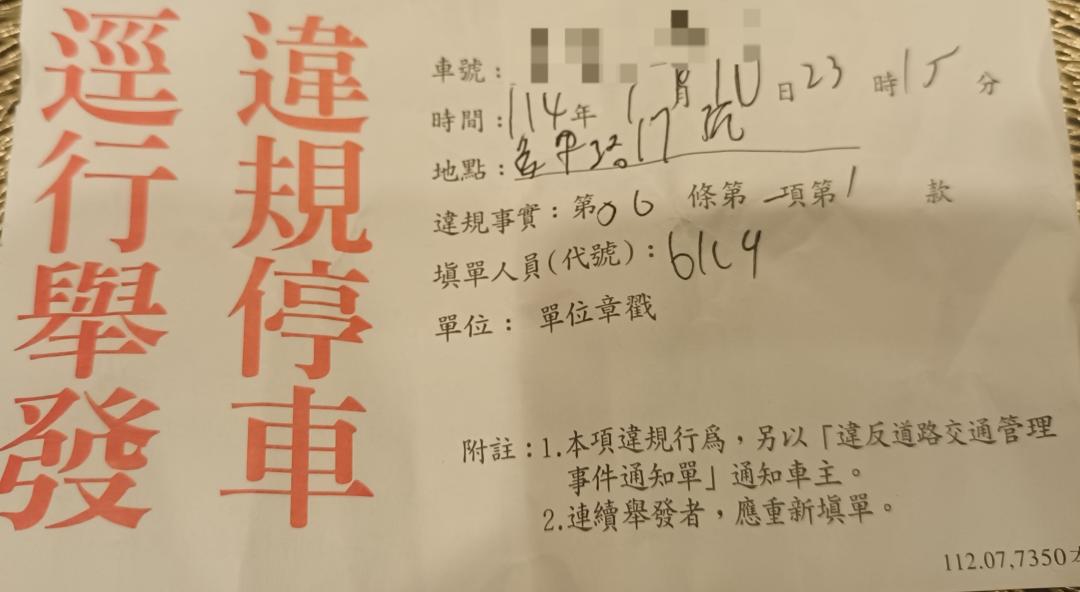 違規停車
逕行舉發
車號：
時間：114年1月10日23時15分
地點：17號
違規事實：第06條第一項第1款
填單人員(代號)：61C4
單位：單位章戳
附註：1.本項違規行為，另以「違反道路交通管理
事件通知單」通知車主。
2.連續舉發者，應重新填單。
112.07,7350本